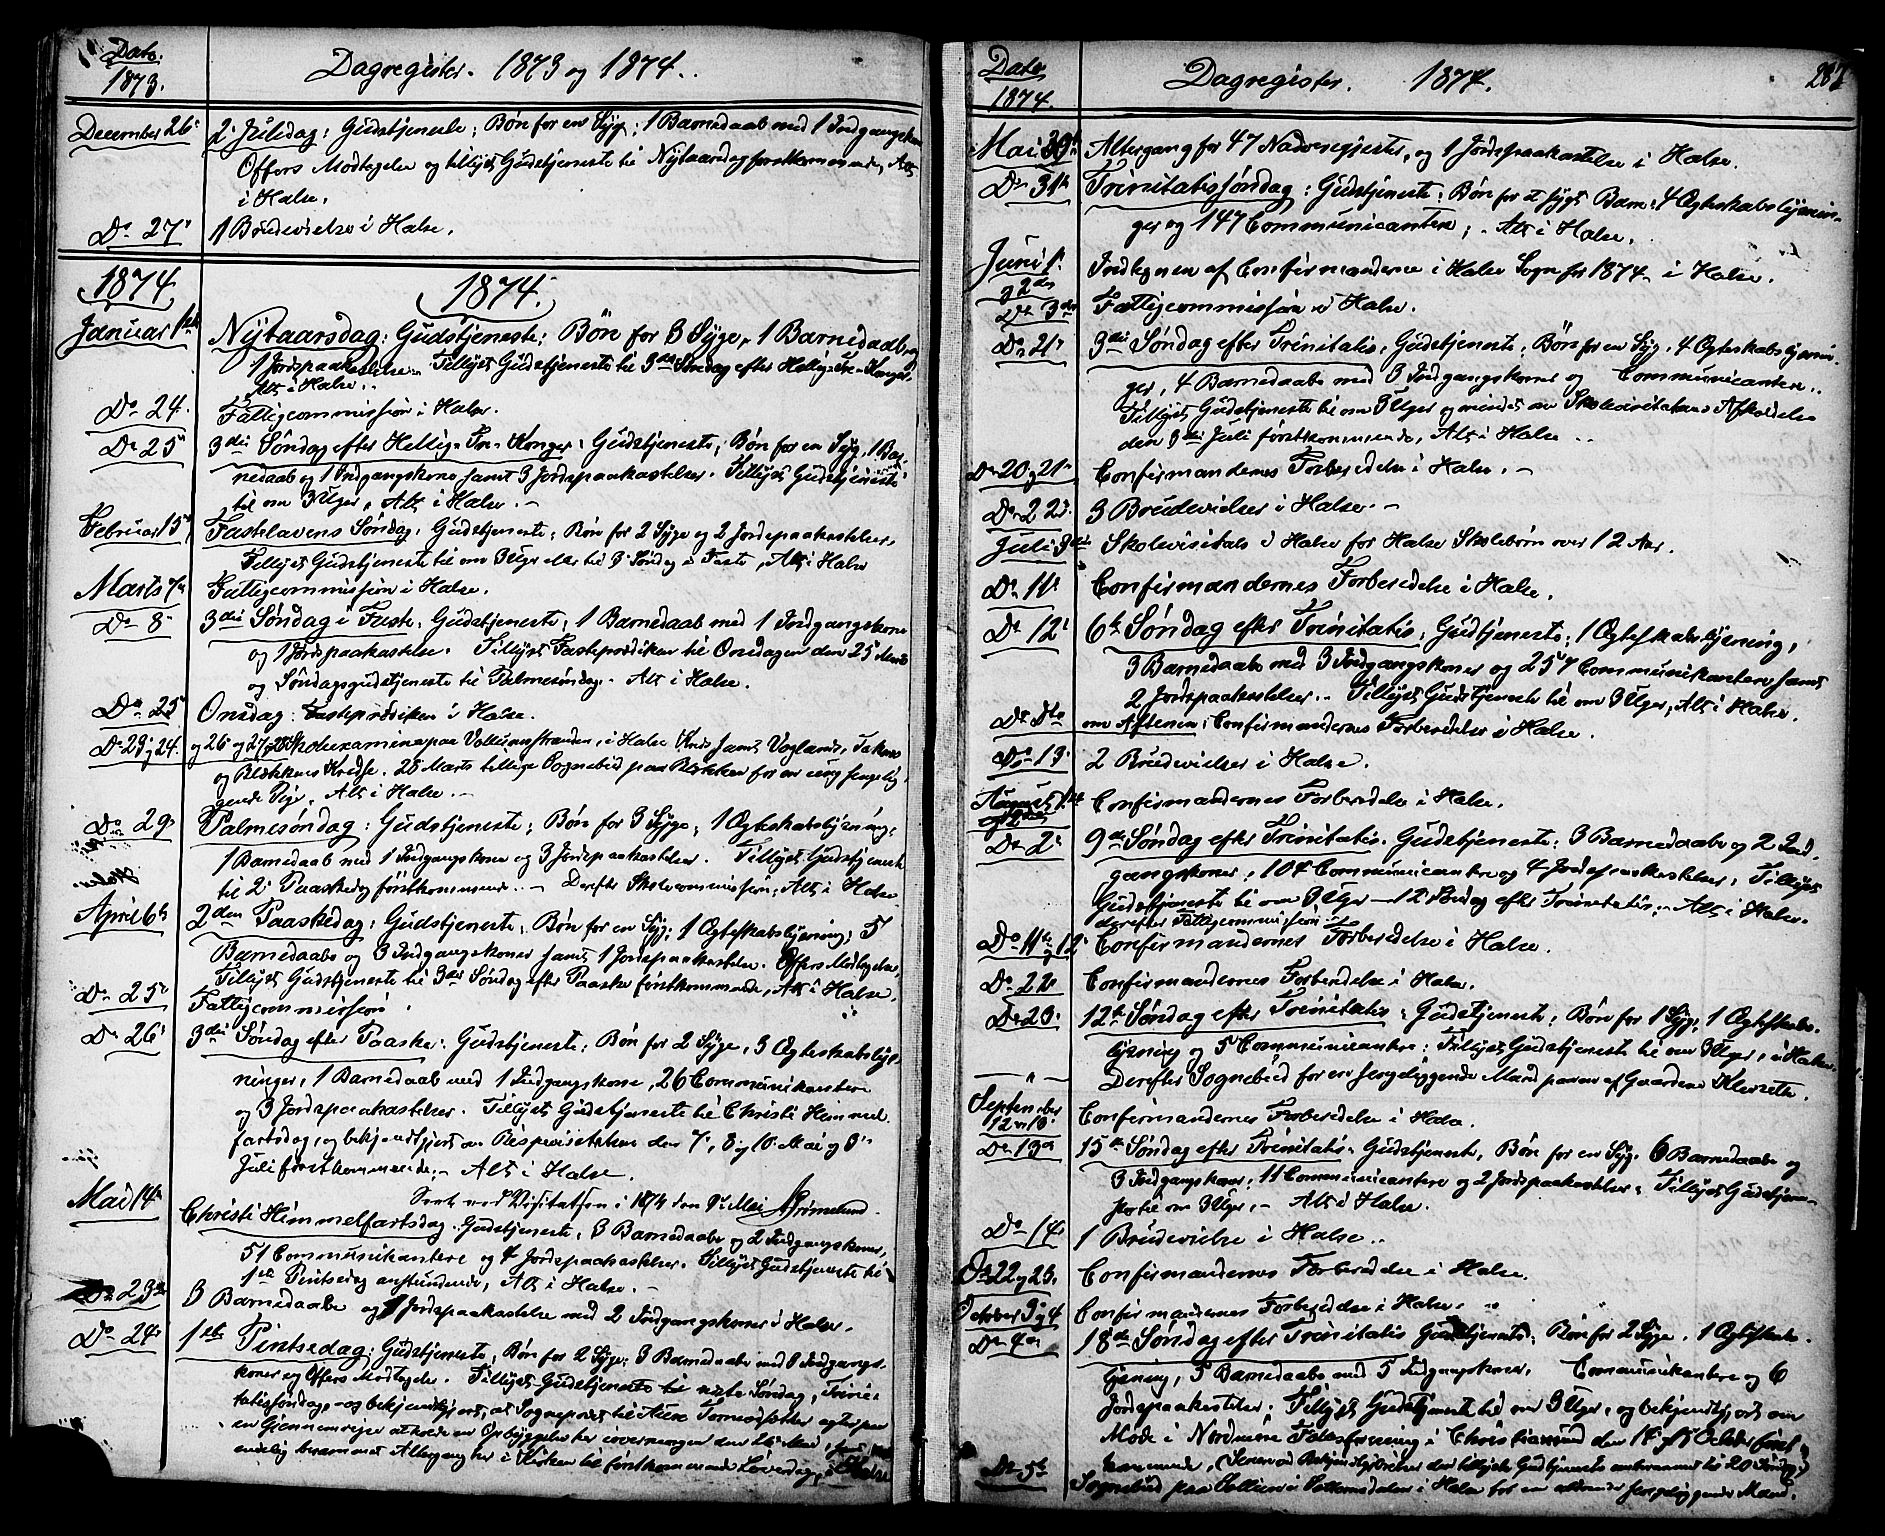 Dato.
1873.
Dagregister. 1873 og 1874.
December 26' 2' Juledag: Gudstjeneste; Bøn for en Syg; 1 Barnedaab med 1 Indgangskone
Offers Modtagelse og tillyst Gudstjeneste til Nytaarsdag førstkommende, Alt
i Halse.
Do 27' 1 Brudevielse i Halse.
1874 1874.
Januar 1ste Nytaarsdag: Gudstjeneste; Bøn for 3 Syge, 1 Barnedaab og
1 Jordspaakastelse. Tillyst Gudstjeneste til 3die Søndag efter Hellig-Tre-Konger,
Alt i Halse.
Do 24. Fattigcommission i Halse.
Do 25' 3die Søndag efter Hellig-Tre-Konger: Gudstjeneste; Bøn for en Syg, 1 Bar-
nedaab og 1 Indgangskone samt 3 Jordspaakastelser. Tillyst Gudstjeneste
til om 3 Uger, Alt i Halse.
Februar 15' Fastelavens Søndag: Gudstjeneste; Bøn for 2 Syge og 2 Jordspaakastelser,
Tillyst Gudstjeneste til om 3 Uger eller til 3' Søndag i Faste, Alt i Halse
Marts 7de Fattigcommission i Halse.
Do 8' 3die Søndag i Faste: Gudstjeneste; 1 Barnedaab med 1 Indgangskone
og 1 Jordspaakastelse. Tillyst Fasteprædiken til Onsdagen den 25' Marts
og Søndagsgudstjeneste til Palmesøndag. Alt i Halse.
Do 25' Onsdag: Fasteprædiken i Halse.
Do 23 og 24. og 26' og 27 og 28' Skoleexamina paa Vollumstranden, i Halse Kreds samt Voglands,
og Blekkens Kredse. 28 Marts tillige Sognebud paa Blekken for en ung sengelig-
gende Pige. Alt i Halse.
Do 29' Palmesøndag: Gudstjeneste; Bøn for 3 Syge; 1 Ægteskabslysning,
1 Barnedaab med 1 Indgangskone og 3 Jordspaakastelser. Tillyst Gudstjeneste
til 2' Paaskedag førstkommende. Derefter Skolecommission, Alt i Halse
April 6te 2den Paaskedag: Gudstjeneste; Bøn for en Syg; 1 Ægteskabslysning; 5
Barnedaabe og 3 Indgangskoner samt 1 Jordspaakastelse. Offers Modtagelse,
Tillyst Gudstjeneste til 3die Søndag efter Paaske førstkommende, Alt i Halse.
Do 25' Fattigcommission.
Do 26' 3die Søndag efter Paaske: Gudstjeneste; Bøn for 2 Syge, 3 Ægteskabslys-
ninger, 1 Barnedaab med 1 Indgangskone, 26 Communikantere
og 3 Jordspaakastelser. Tillyst Gudstjeneste til Christi Himmel-
fartsdag, og bekjendtgjort om Bispevisitatsen den 7', 8' og 10' Mai og 3'
Juli førstkommende; Alt i Halse.
Seet ved Visitatsen i 1874 den 9de Mai
Mai 14de Christi Himmelfartsdag. Gudstjeneste, 3 Barnedaabe og 2 Indgangskoner,
51 Communikantere og 4 Jordspaakastelser. Tillyst Gudstjeneste til
1ste Pintsedag anstundende, Alt i Halse.
Do 23de 3 Barnedaabe og 1 Jordspaakastelse med 2 Indgangskoner i Halse.
Do 24' 1ste Pintsedag: Gudstjeneste; Bøn for 2 Syge; 3 Barnedaabe med 3 Indgangs-
koner og Offers Modtagelse. Tillyst Gudstjeneste til næste Søndag, Trini-
tatissøndag, og bekjendtgjort, at Sognepræst til Aure
en Gjennemrejse
endelig berammet Altergang her i Kirken til førstkommende Løverdag, i Halse
Dato
1874.
Dagregister. 1874.
287
Mai 30te Altergang for 47 Nadvergjester, og 1 Jordspaakastelse i Halse.
Do 31te Trinitatissøndag: Gudstjeneste; Bøn for et sygt Barn; 4 Ægteskabslysnin-
ger og 147 Communicantere; Alt i Halse.
Juni 1' Indtegnen af Confirmanderne i Halse Sogn for 1874 i Halse.
og 2den
Do 3die Fattigcommission i Halse.
Do 21' 3die Søndag efter Trinitatis, Gudstjeneste; Bøn for en Syg, 4 Ægteskabslysnin-
ger, 4 Barnedaabe med 3 Indgangskoner og Communicantere.
Tillyst Gudstjeneste til om 3 Uger og mindet om Skolevisitatsens Afholdelse
den 3die Juli førstkommende, Alt i Halse.
Do 20 og 21' Confirmandernes Forberedelse i Halse.
Do 22' 3 Brudevielser i Halse.
Juli 3die Skolevisitats i Halse for Halse Skolebørn over 12 Aar.
Do 11' Confirmandernes Forberedelse i Halse.
Do 12' 6te Søndag efter Trinitatis: Gudstjeneste; 1 Ægteskabslysning,
3 Barnedaabe med 3 Indgangskoner og 257 Communikantere samt
2 Jordspaakastelser. Tillyst Gudstjeneste til om 3 Uger, Alt i Halse.
Do Dto om Aftenen: Confirmandernes Forberedelse i Halse.
Do 13' 2 Brudevielser i Halse.
August 1ste Confirmandernes Forberedelse i Halse.
Do 2' 9de Søndag efter Trinitatis. Gudstjeneste; 3 Barnedaabe og 2 Ind-
gangskoner, 104 Communicantere og 4 Jordspaakastelser; Tillyst
Gudstjeneste til om 3 Uger 12' Søndag efter Trinitatis; Alt i Halse.
derefter Fattigcommission
Do 11te og 12' Confirmandernes Forberedelse i Halse.
Do 22' Confirmandernes Forberedelse i Halse.
Do 23' 12te Søndag efter Trinitatis: Gudstjeneste; Bøn for 1 Syg; 1 Ægteskabs-
lysning og 5 Communicantere; Tillyst Gudstjeneste til om 3 Uger, i Halse.
" Derefter Sognebud for en sengeliggende Mand paa en af Gaardene
September
12' Confirmandernes Forberedelse i Halse.
Do 13de 15de Søndag efter Trinitatis. Gudstjeneste, Bøn for en Syg. 6 Barnedaabe og
3 Indgangskoner, 11 Communicantere og 2 Jordspaakastelser; Tillyst Gudstjene-
ste til om 3 Uger, Alt i Halse.
Do 14' 1 Brudevielse i Halse.
Do 22 og 23. Confirmandernes Forberedelse i Halse.
October 3 og 4 Confirmandernes Forberedelse i Halse.
Do 4de 18de Søndag efter Trinitatis Gudstjeneste; Bøn for 2 Syge. 1 Ægteskabs-
lysning, 5 Barnedaabe med 5 Indgangskoner, Communikantere og 6
Jordspaakastelser; Tillyst Gudstjeneste til om 3 Uger, og bekjendtgjort om
Møde i Nordmøre i Christiansund den 14' og 15 October først-
kommende,
Do 5te Sognebud paa i Halse for en sengeliggende Mand.